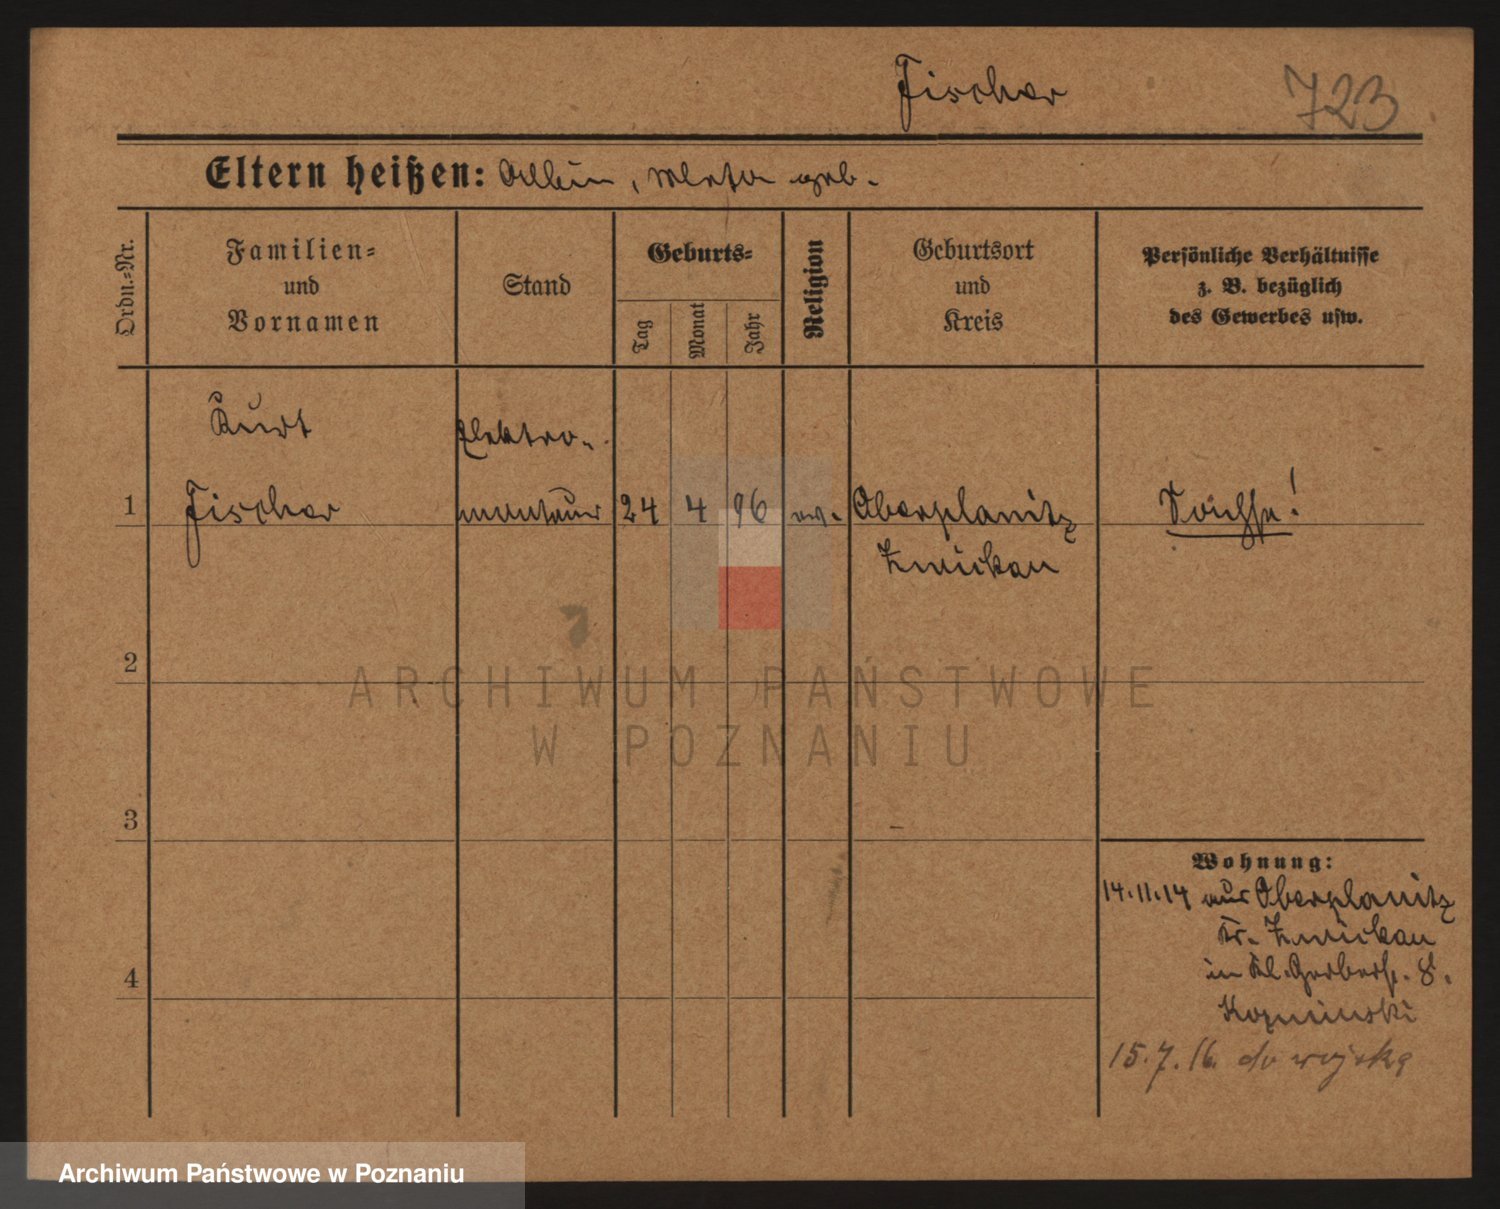 Fischer
723
Eltern heißen: Albin, Meta geb.
Ordn.-Nr.
Familien- und Vornamen
Stand
Geburts-
Tag
Monat
Jahr
Religion
Geburtsort und Kreis
Persönliche Verhältnisse
z. B. bezüglich
des Gewerbes usw.
Kurt
Elektro-
1 Fischer monteur 24 4 96 ev. Oberplanitz Sachse!
Zwickau
2
ARCHIWUM PAŃSTWOWE
W POZNANIU
3
Wohnung:
14.11.14 aus Oberplanitz
Kr. Zwickau
4
in Kl. Gerberst. 8.
Kozminski
15.7.16. do wojska
Archiwum Państwowe w Poznaniu